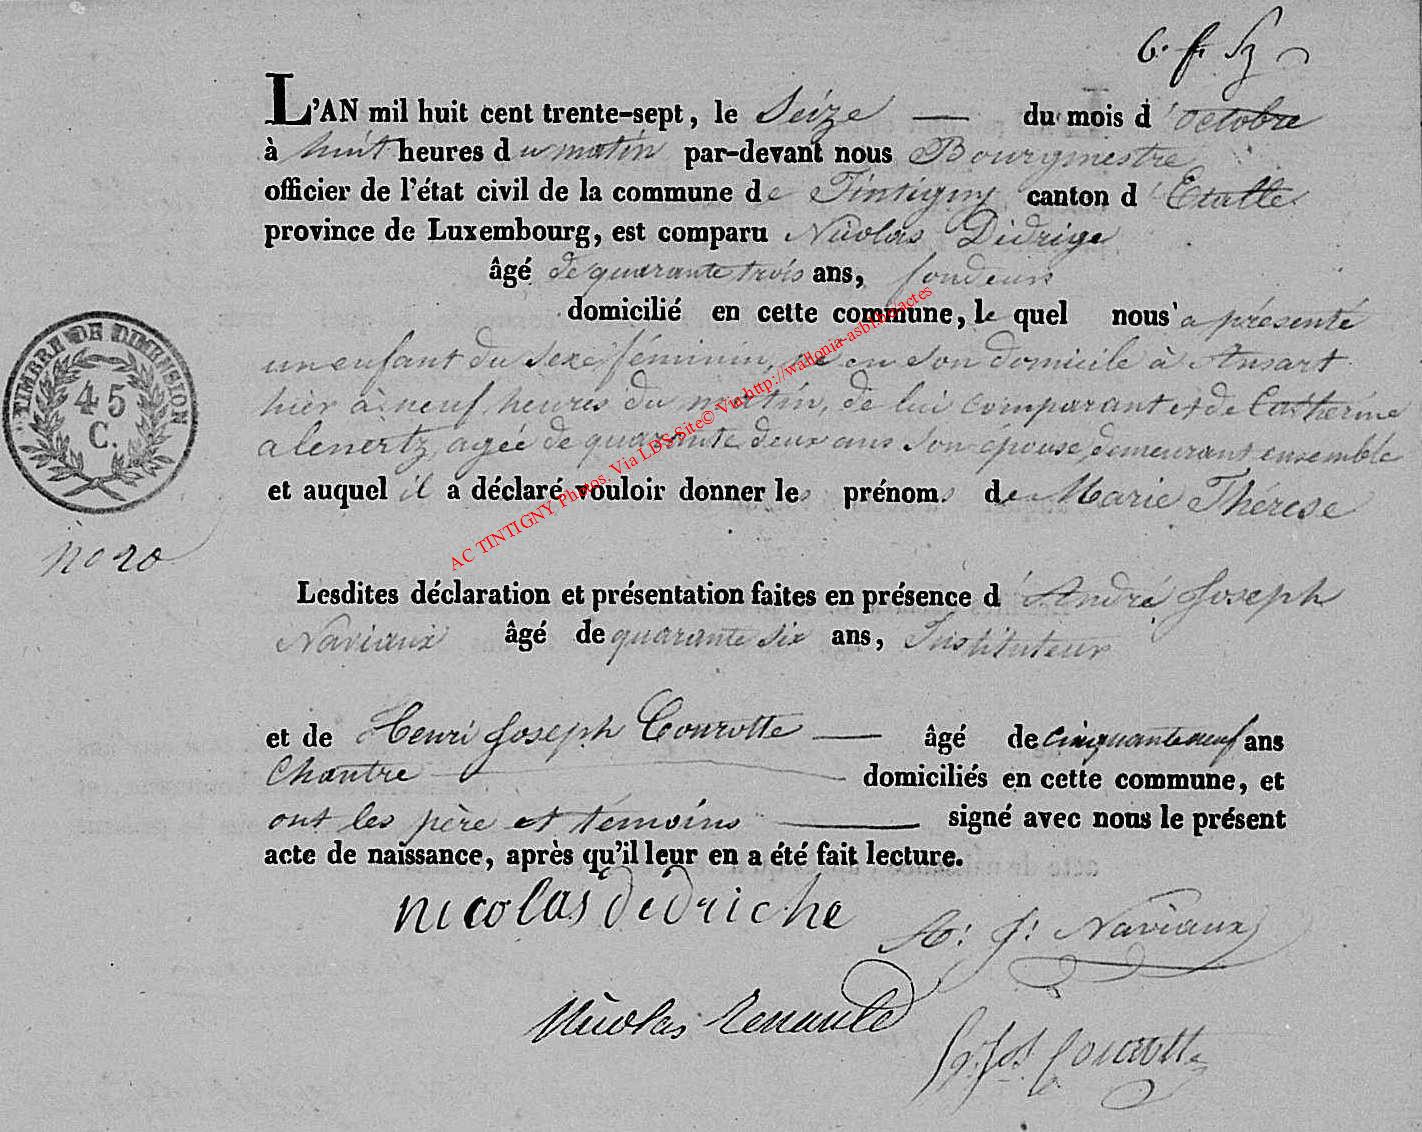 L'AN mil huit cent trente-sept, le Seize du mois d'octobre
à huit heures du matin par-devant nous Bourgmestre
officier de l'état civil de la commune de Tintigny canton d'Etalle
province de Luxembourg, est comparu Nicolas Didrige
âgé de quarante trois ans, fondeur
domicilié en cette commune, le quel nous a présenté
un enfant du sexe féminin, né en son domicile à Ansart
hier à neuf heures du matin, de lui comparant et de Catherine
alenertz, agée de quarante deux ans son épouse, demeurant ensemble
et auquel il a déclaré vouloir donner les prénoms de Marie Therese
TIMBRE DE DIMENSION
45
C.
no 20
Lesdites déclaration et présentation faites en présence d'André Joseph
Naviaux âgé de quarante six ans, Instituteur
et de Henri Joseph Courotte âgé de cinquante neuf ans
Chantre domiciliés en cette commune, et
ont les père et témoins signé avec nous le présent
acte de naissance, après qu'il leur en a été fait lecture.
nicolas didriche
A. J. Naviaux
Nicolas Renauld
Courotte
AC TINTIGNY Photos. Via LDS Site© Via http://wallonia-asbl.be/actes